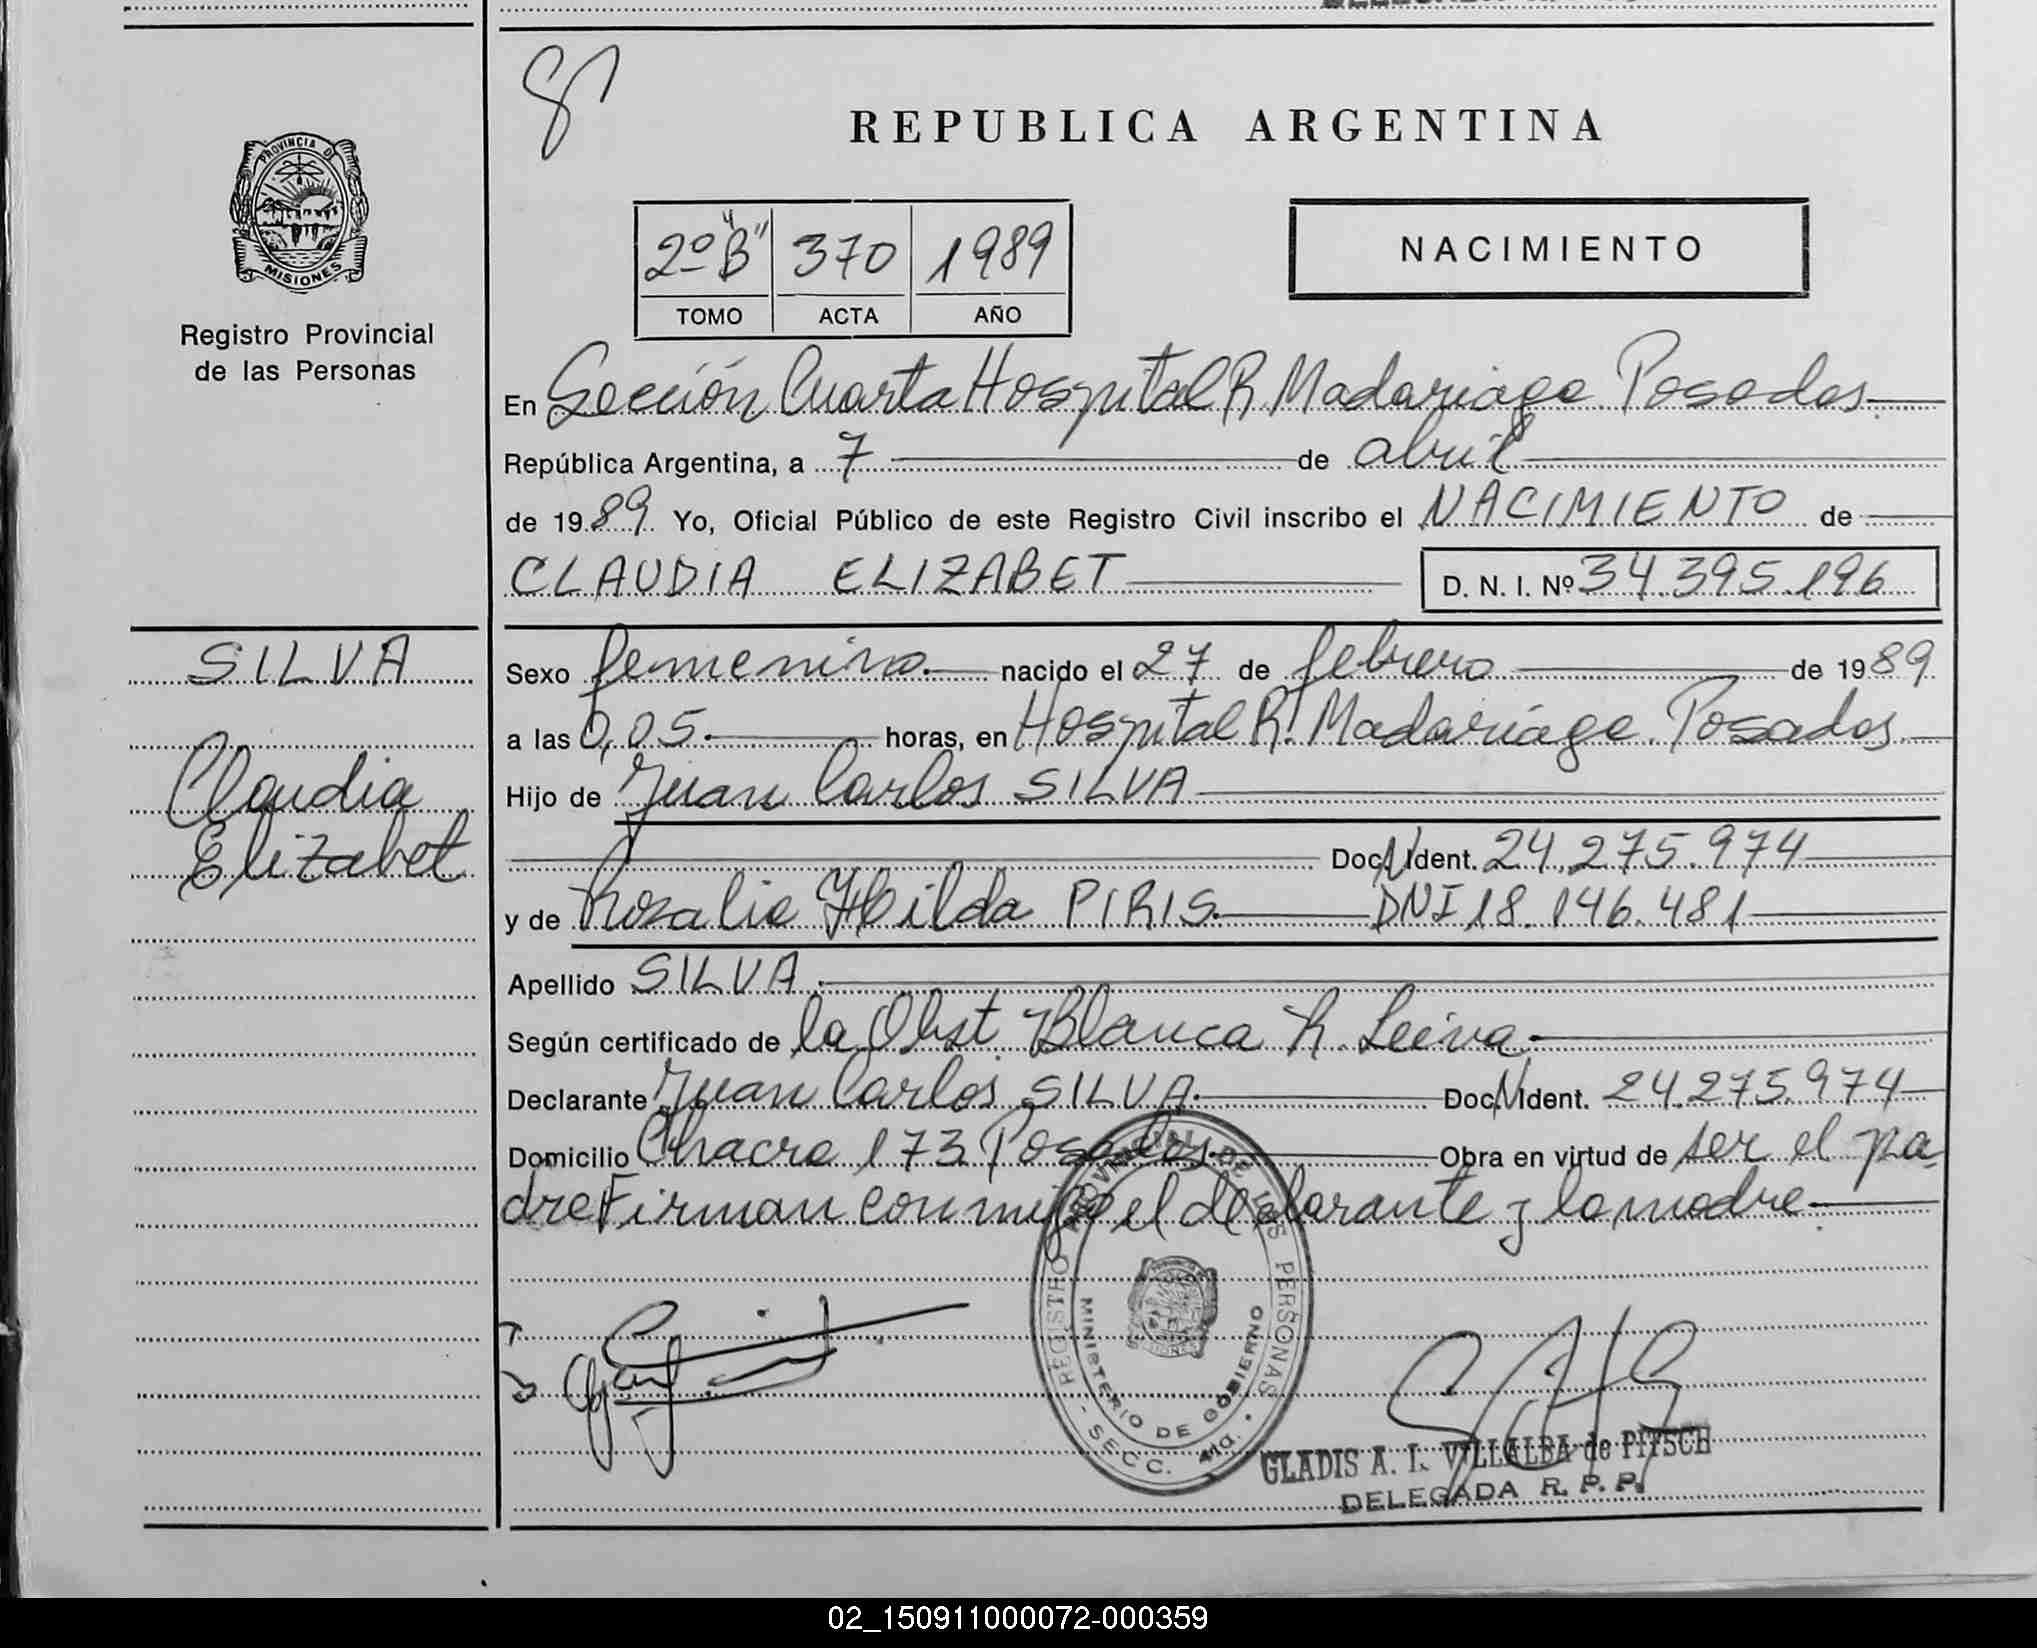 REPUBLICA ARGENTINA
PROVINCIA DE
MISIONES
Registro Provincial
de las Personas
2º "B" 370 1989
TOMO ACTA AÑO
NACIMIENTO
En Sección Cuarta Hospital R. Madariaga Posadas
República Argentina, a 7 de abril
de 1989 Yo, Oficial Público de este Registro Civil inscribo el NACIMIENTO de
CLAUDIA ELIZABET D. N. I. Nº 34.395.196
SILVA
Claudia
Elizabet
Sexo femenino. nacido el 27 de febrero de 1989
a las 0,05. horas, en Hospital R. Madariaga. Posadas
Hijo de Juan Carlos SILVA
Doc. N Ident. 24.275.974
y de Rozalia Hilda PIRIS. DNI 18.146.481
Apellido SILVA.
Según certificado de la Obst. Blanca R. Leiva.
Declarante Juan Carlos SILVA. Doc. N Ident. 24.275.974
Domicilio Chacra 173 Posadas. Obra en virtud de ser el pa-
dre Firman conmigo el declarante y la madre
REGISTRO PROVINCIAL DE LAS PERSONAS
MINISTERIO DE GOBIERNO
- SECC. 4ta. -
GLADIS A. I. VILLALBA de PITSCH
DELEGADA R. P. P.
02_150911000072-000359